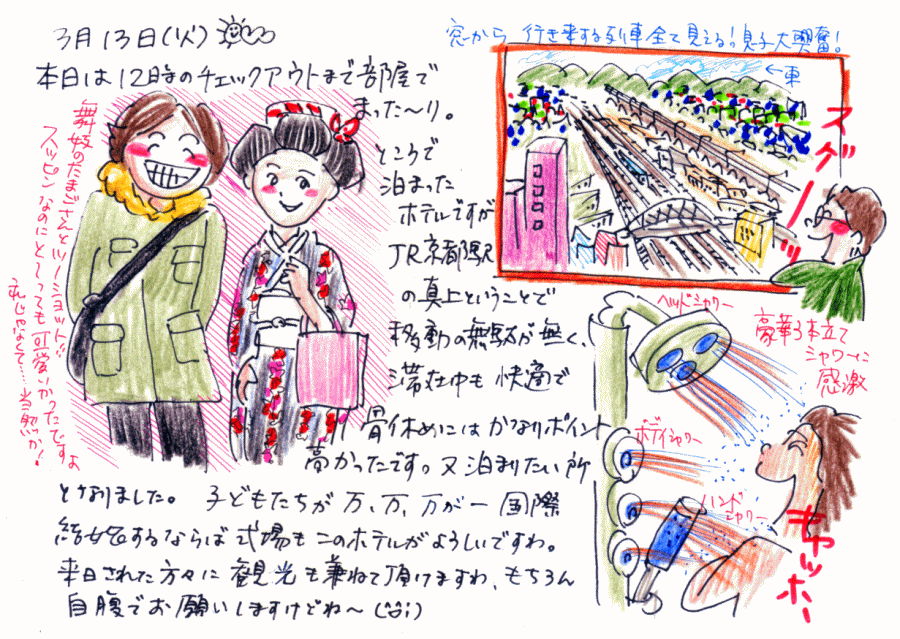 3月13日(火)
本日は12時のチェックアウトまで部屋で
まった〜り。
ところで
泊まった
ホテルですが
JR京都駅
の真上ということで
移動の無駄が無く、
滞在中も快適で
骨休めにはかなりポイント
高かったです。又泊まりたい所
となりました。子どもたちが万、万、万が一国際
結婚するならば式場もこのホテルがよろしいですわ。
来日された方々に観光も兼ねて頂けますわ、もちろん
自腹でお願いしますけどね〜(^^;)
舞妓のたまごさんとツーショット!!
スッピンなのにと〜っても可愛いかったですよ
私じゃなくて……当然か!
窓から行き来する列車全て見える!息子大興奮!
←東
スゲーーッ
ヘッドシャワー
豪華3本立て
シャワーに
感激
ボディシャワー
ハンド
シャワー
キャッホー